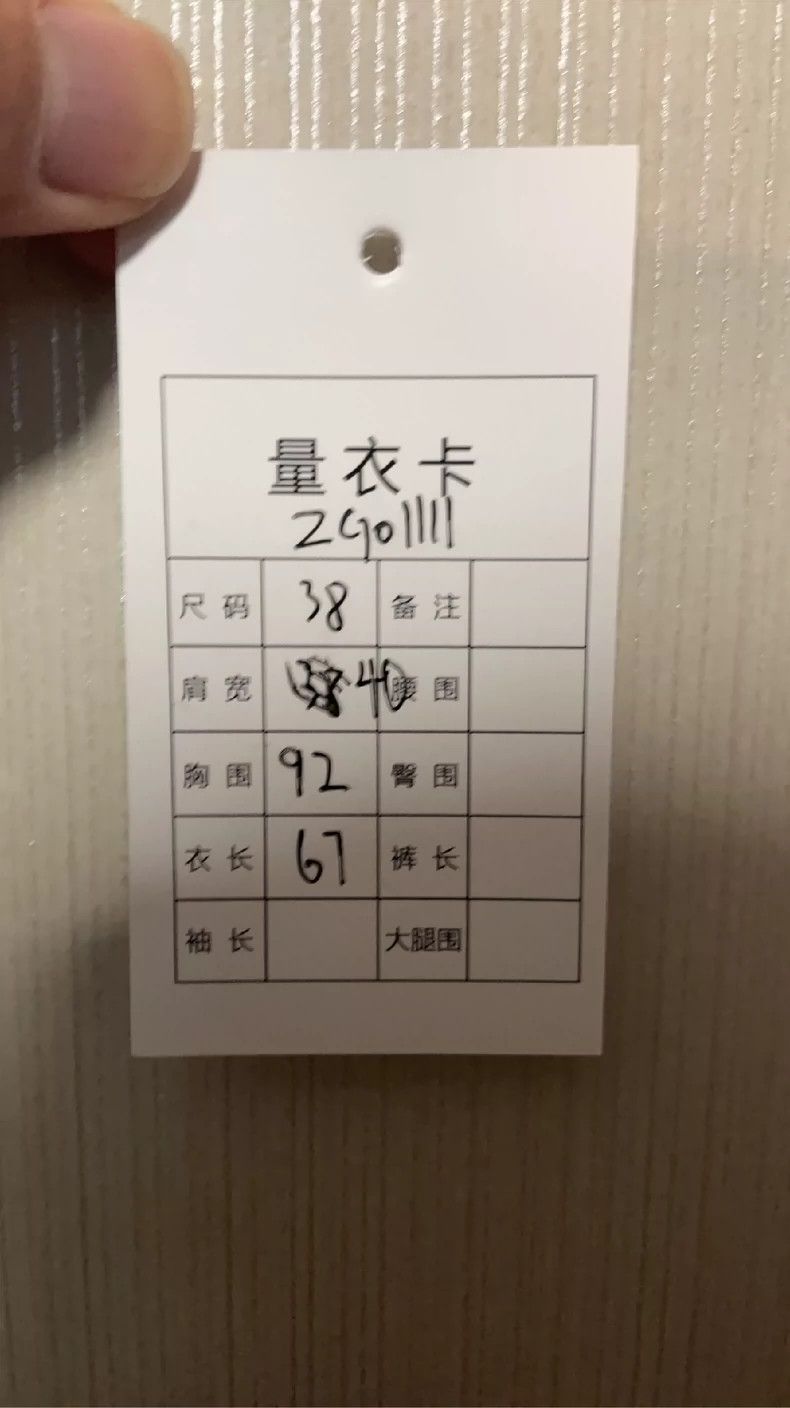 量衣卡
ZG01111
尺码 38 备注
肩宽 40 腰围
胸围 92 臀围
衣长 67 裤长
袖长 大腿围